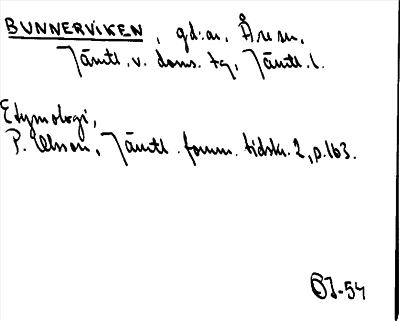 BUNNERVIKEN, gd:ar, Åre sn,
Jämtl. v. doms. tg, Jämtl. l.
Etymologi,
P. Olsson, Jämtl. fornm. tidskr. 2, p. 163.
OJ-54